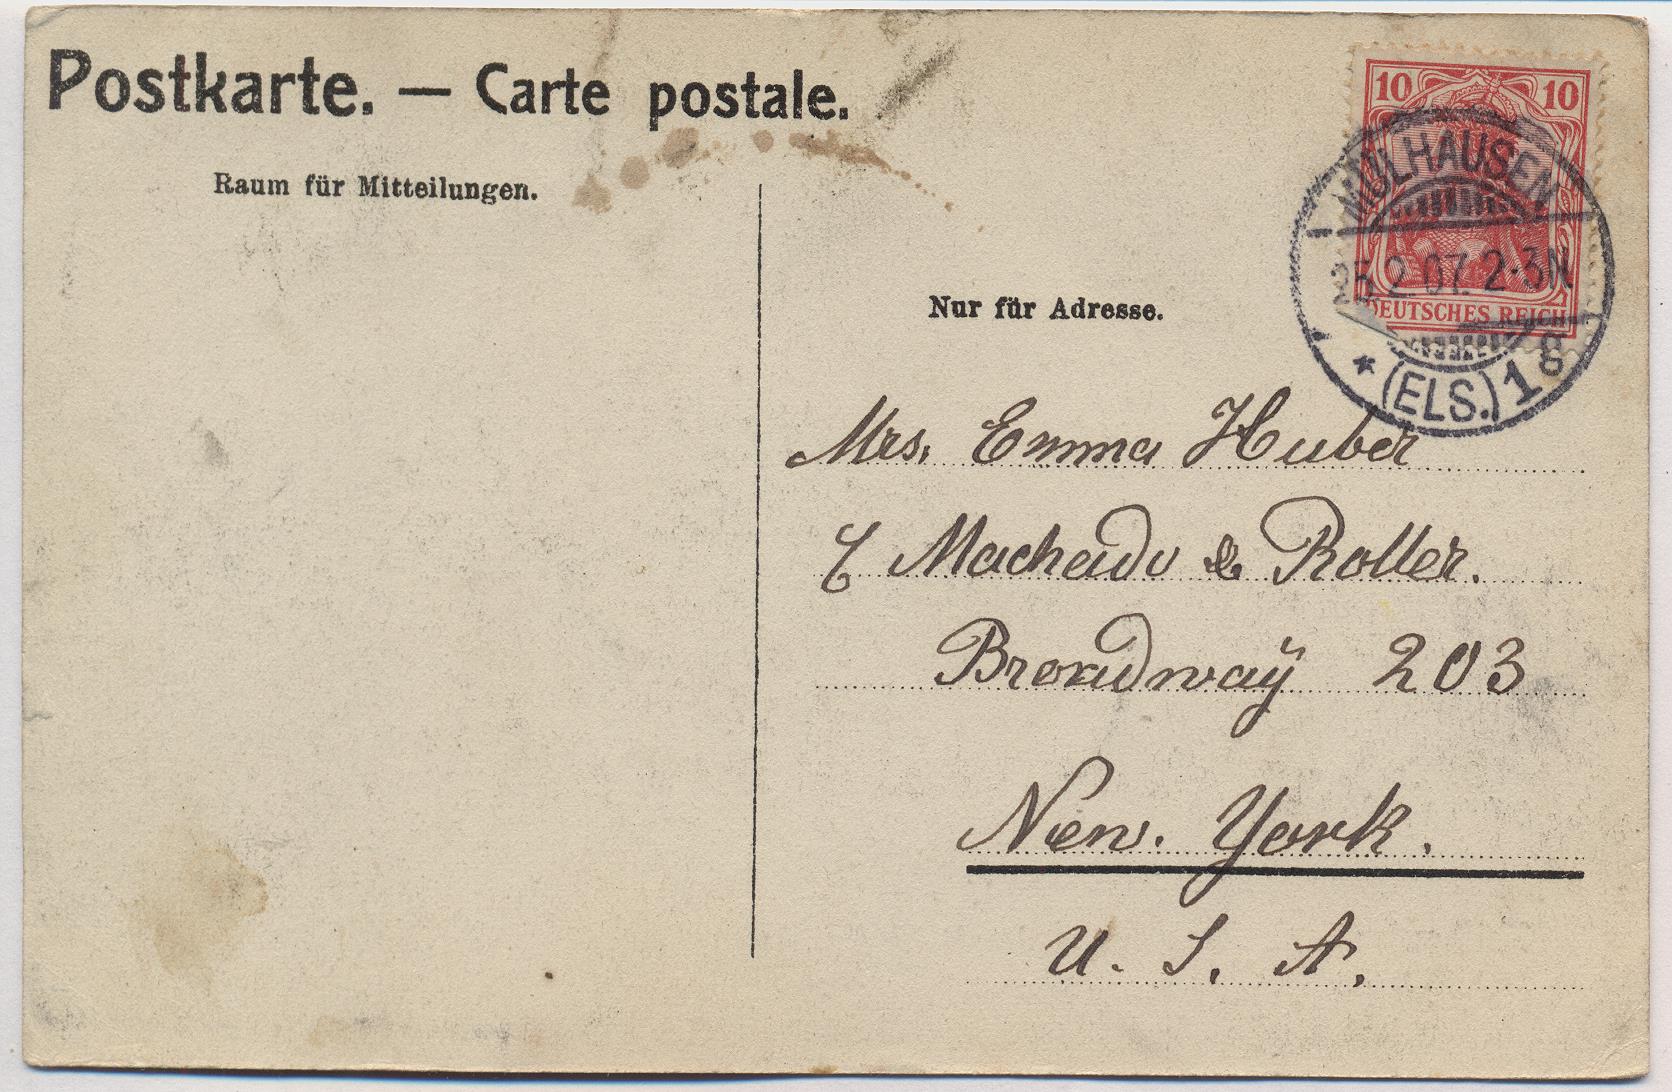 Postkarte. — Carte postale.
Raum für Mitteilungen.
Nur für Adresse.
10 10
DEUTSCHES REICH
MÜLHAUSEN
25.2.07. 2-3N
* (ELS.) 1g
Mrs. Emma Huber
Machado & Roller.
Broadway 203
New. York.
U. S. A.